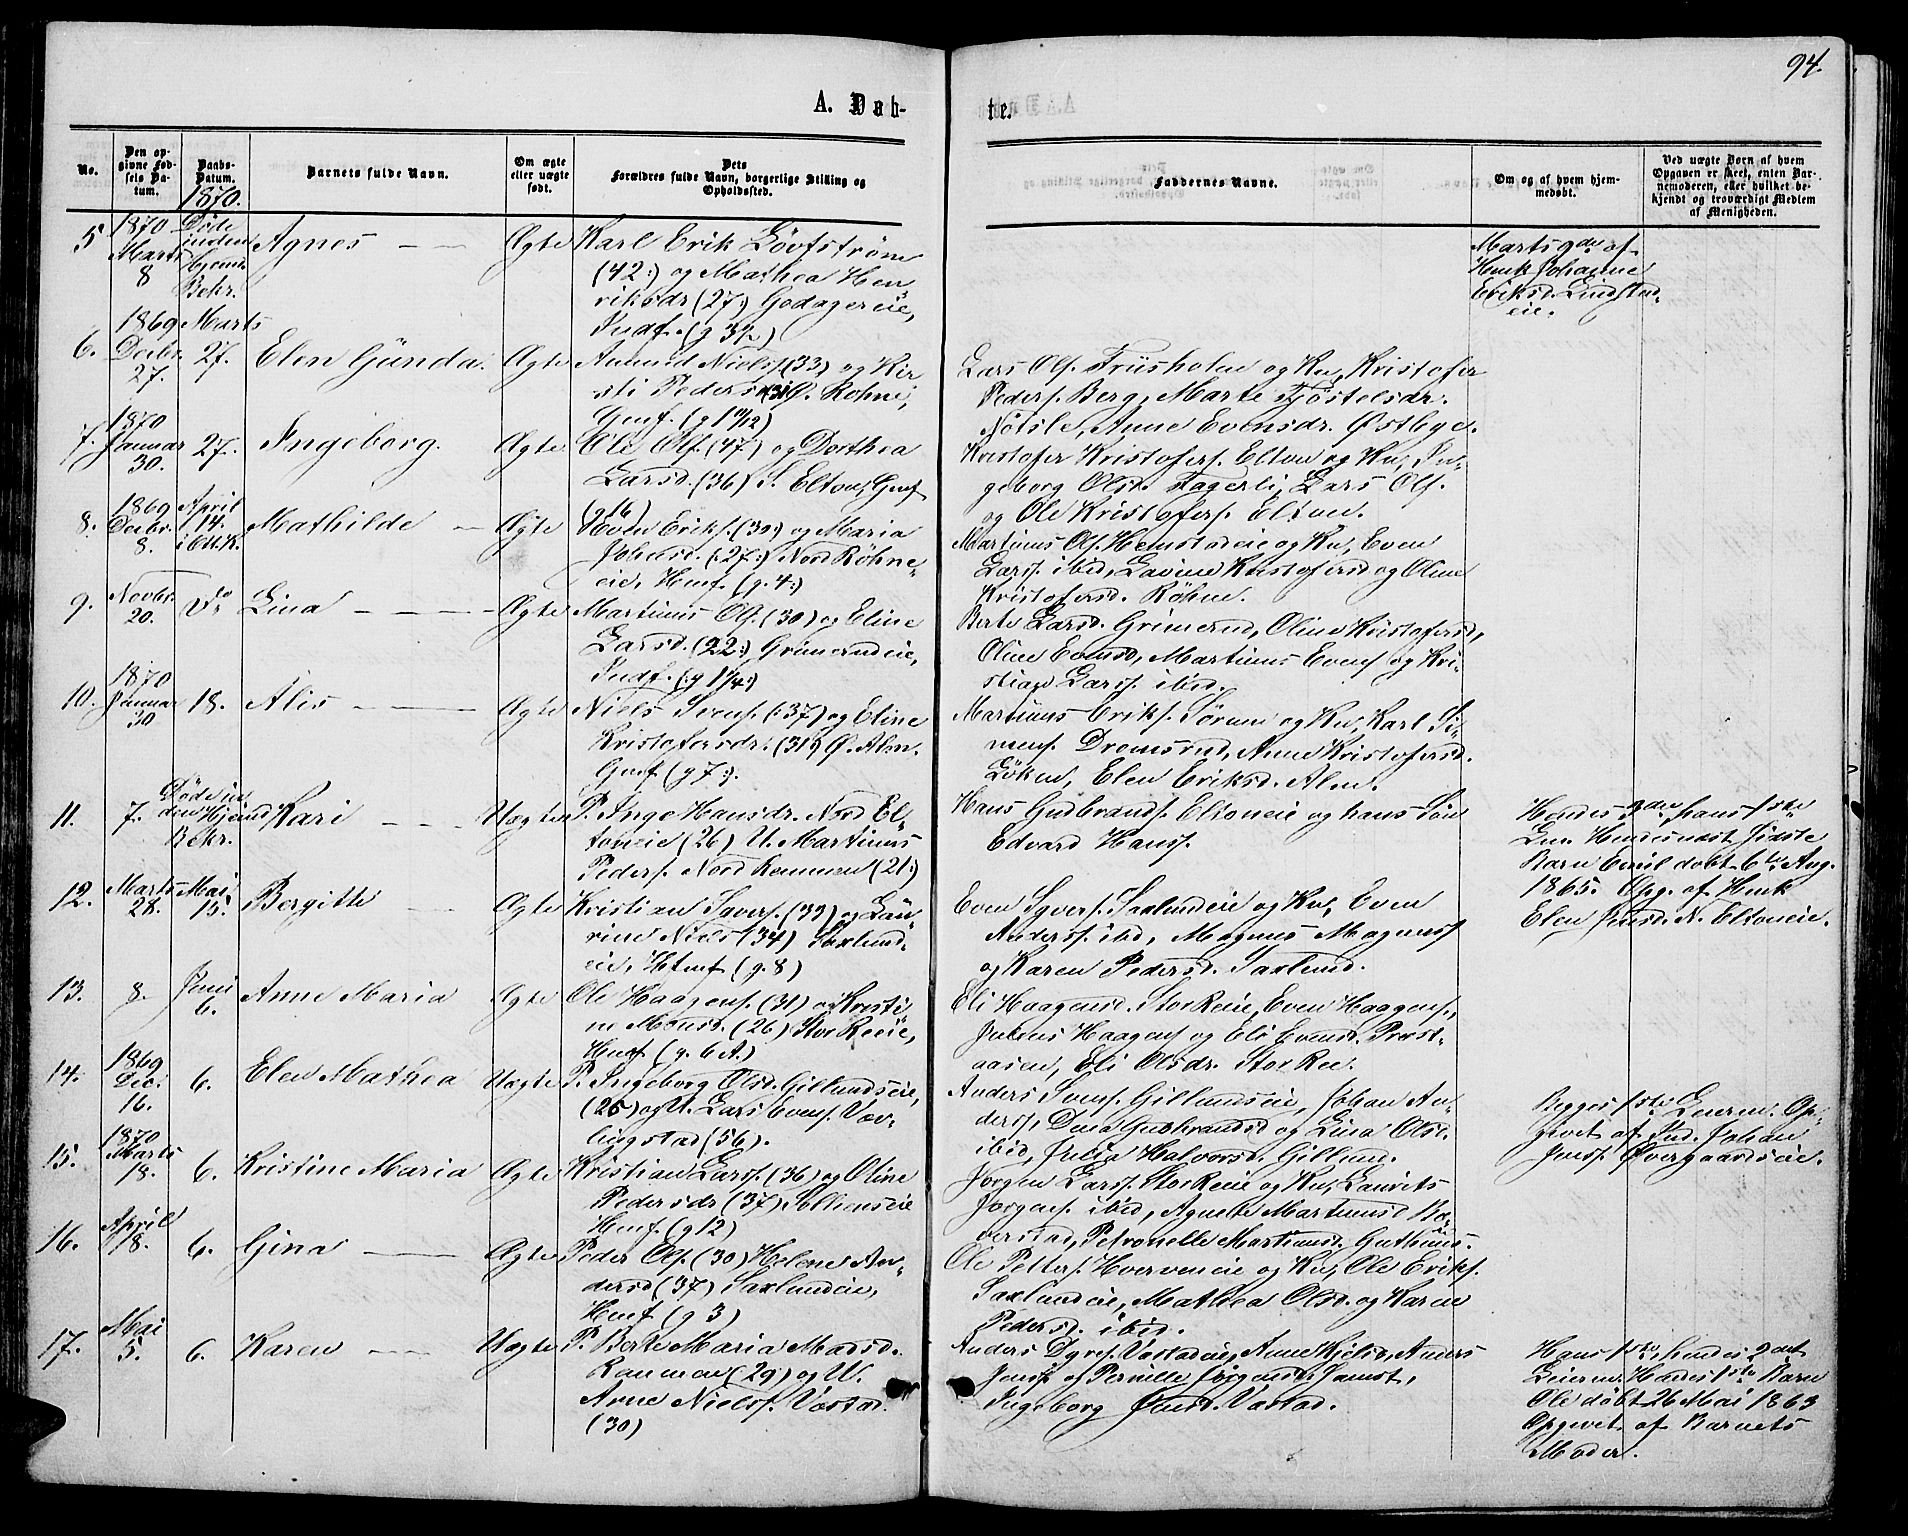 94.
A. Døb-
te.
No.
Den op-
givne Fød-
sels Da-
tum.
Daabs-
Datum.
1870.
Barnets fulde Navn.
Om ægte
eller uægte
født.
Dets
Forældres fulde Navn, borgerlige Stilling og
Opholdssted.
Faddernes Navne.
Om og af hvem hjem-
medøbt.
Ved uægte Børn af hvem
Opgaven er skeet, enten Bar-
nemoderen, eller hvilket be-
kjendt og troværdigt Medlem
af Menigheden.
5
1870
Marts
8
Døde
inden
Hjemd.
Bekr.
Agnes
Ægte
Karl Erik Løvfstrøm
(42:) og Mathea Hen-
riksdr (27:) Godagereie,
Indf. (g 3
Marts 9de af
Henk Johanne
Eriksd. Lindstad-
eie.
6.
1869
Decbr.
27.
Marts
27.
Elen Gunda.
Ægte
Amund Nielsf (33) og Kir-
sti Pedersd (31) Ø. Røhne,
Gmf. (g 11/12)
Lars Olf. Friisholm og Ku, Kristofer
Pedersf. Berg, Marte Tjøstelsdr.
Nötsle, Anne Evensdr. Østbye.
7.
1870
Januar
30.
27.
Ingeborg.
Ægte
Ole Olf. (47) og Dorthea
Larsd. (36) S. Elton, Gmf
(g 16)
Kristofer Kristofersf. Elton og Ku, In-
geborg Olsd. Fagerli, Lars Olf.
og Ole Kristofersf. Elton.
8.
1869
Decbr.
8.
April
14.
i Ott.K.
Mathilde
Ægte
Even Eriksf. (30:) og Maria
Johnsd. (:27:) Nord Røhne-
eie, Hmf. (g. 4:)
Martinus Olf. Hemstadeie og Ku, Even
Larsf. ibid, Lavine Kristofersd og Oline
Kristofersd. Røhne.
9.
Novbr.
20.
Do
Lina
Ægte
Martinus Olf. (30) og Eline
Larsd. (22:) Grimerudeie,
Indf. (:g 1 1/4:)
Berte Larsd. Grimerud, Oline Kristofersd,
Oline Evensd, Martinus Evensf og Kri-
stian Larsf. ibid.
10.
1870
Januar
30
18.
Alis
Ægte
Niels Svensf. (:37) og Eline
Kristofersdr. (31) Ø. Alm.
Gmf. (g 7:).
Martinus Eriksf. Sørum og Ku, Karl Si-
mensf. Dromsrud, Anne Kristofersd.
Løken, Elen Eriksd. Alm.
11.
7.
Døde in
den Hjemd
Bekr.
Kari
Uægte
P. Inge Hansdr. Nord El-
toneie (26) U. Martinus
Pedersf. Nord Rommen (21:)
Hans Gudbrandsf. Eltoneie og hans Søn
Edvard Hansf.
Hendes 3die, hans 1ste
Lm. Hendes næst sidste
Barn Emil døbt 6te Aug.
1865. Opg. af Henk
Elen Jensd. N. Eltoneie.
12.
Marts
28.
Mai
15.
Bergitte
Ægte
Kristian Syversf. (39) og Lau-
rine Niels (34) Saxlund-
eie, Hmf (g. 8)
Even Syversf. Saxlundeie og Ku, Even
Andersf. ibid, Magnus Magnusf
og Karen Pedersd. Saxlund.
13.
8.
Juni
6.
Anne Maria
Ægte
Ole Haagensf. (31) og Kristi-
ne Monsd. (26) Stor Reeie,
Hmf. (g. 6 A.)
Eli Haagensd. Stor Reeie, Even Haagensf.,
Julius Haagensf og Eli Evensd. Præst-
aasen, Eli Olsdr. Stor Ree.
14.
1869
Dec.
16.
6.
Elen Mathea
Uægte
P. Ingeborg Olsd. Gillundseie,
(25) og U. Lars Evensf. Vær-
lingstad (56).
Anders Svensf. Gillundseie, Johan An-
dersf, Dina Gudbrandsd og Lina Olsd.
ibid, Julia Halvorsd. Gillund.
Begges 1ste Leierm. Op-
givet af Ind. Johan
Jensf. Øvergaardseie.
15.
1870
Marts
18.
6.
Kristine Maria
Ægte
Kristian Larsf. (36) og Oline
Pedersdr (37) Sollienseie
Hmf. (g 12)
Jørgen Larsf. Stor Reeie og Ku, Laurits
Jørgensf. ibid, Agnete Martinusd Bæ-
verstad, Petronelle Martinusd. Guthuus.
16.
April
18.
6.
Gina
Ægte
Peder Olf. (30) Helene An-
dersd (37) Saxlundeie,
Hmf. (g 3)
Ole Pettersf. Hverveneie og Ku, Ole Eriksf.
Saxlundeie, Mathea Olsd. og Karen
Pedersd. ibid.
17.
Mai
5.
6.
Karen
Uægte
P. Berte Maria Madsd.
Rommen (29) og U.
Arne Nielsf. Væstad.
(30)
Anders Dyresf. Væstadeie, Anne Hjelis, Anders
Jensf. af Pernille Jørgensd. Jømst,
Ingeborg Jensd. Væstad.
Hans 1ste, hendes 2det
Leierm. Hendes 1ste Barn
Ole døbt 26 Mai 1863
Opgivet af Barnets
Moder.